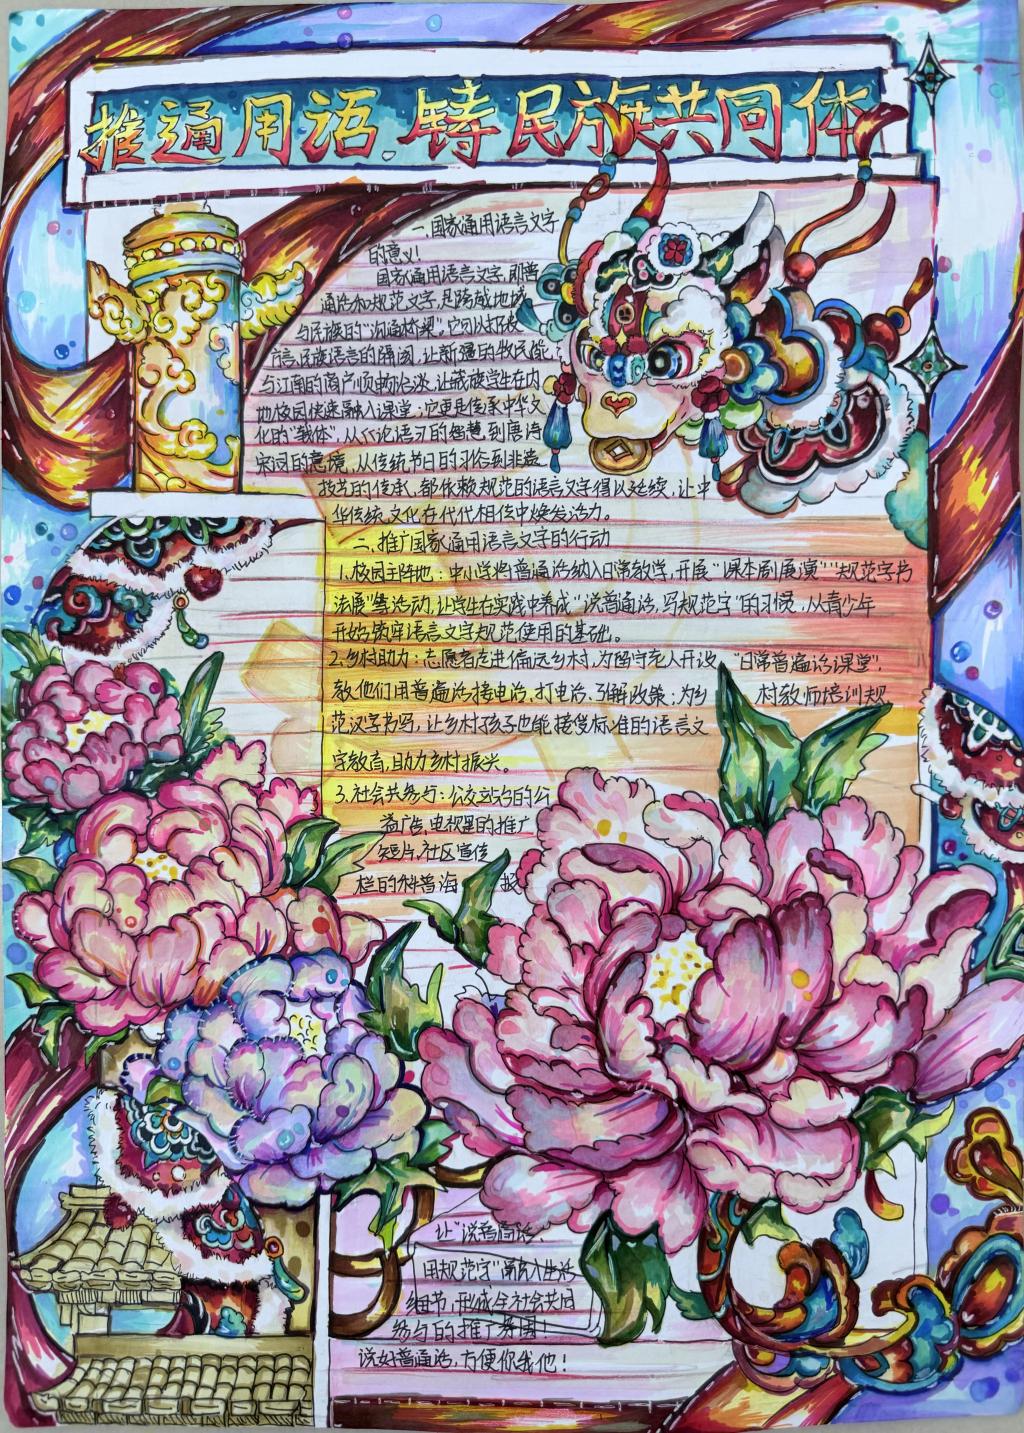 推通用语 铸民族共同体
一.国家通用语言文字
的意义!
国家通用语言文字,即普
通话和规范文字,是跨越地域
与民族的"沟通桥梁",它可以打破
方言、民族语言的隔阂,让新疆的牧民能
与江南的商户顺畅洽谈,让藏族学生在内
地校园快速融入课堂;它更是传承中华文
化的"载体",从《论语》的智慧到唐诗
宋词的意境,从传统节日的习俗到非遗
技艺的传承,都依赖规范的语言文字得以延续,让中
华传统文化在代代相传中焕发活力。
二.推广国家通用语言文字的行动
1.校园主阵地:中小学将普通话纳入日常教学,开展"课本剧展演""规范字书
法展"等活动,让学生在实践中养成"说普通话,写规范字"的习惯,从青少年
开始筑牢语言文字规范使用的基础。
2.乡村助力:志愿者走进偏远乡村,为留守老人开设"日常普通话课堂",
教他们用普通话接电话、打电话、了解政策;为乡村教师培训规
范汉字书写,让乡村孩子也能接受标准的语言文
字教育,助力乡村振兴。
3.社会共参与:公交站台的公
益广告,电视里的推广
短片,社区宣传
栏的科普海报
让"说普通话,
用规范字"融入生活
细节,形成全社会共同
参与的推广氛围!
说好普通话,方便你我他!